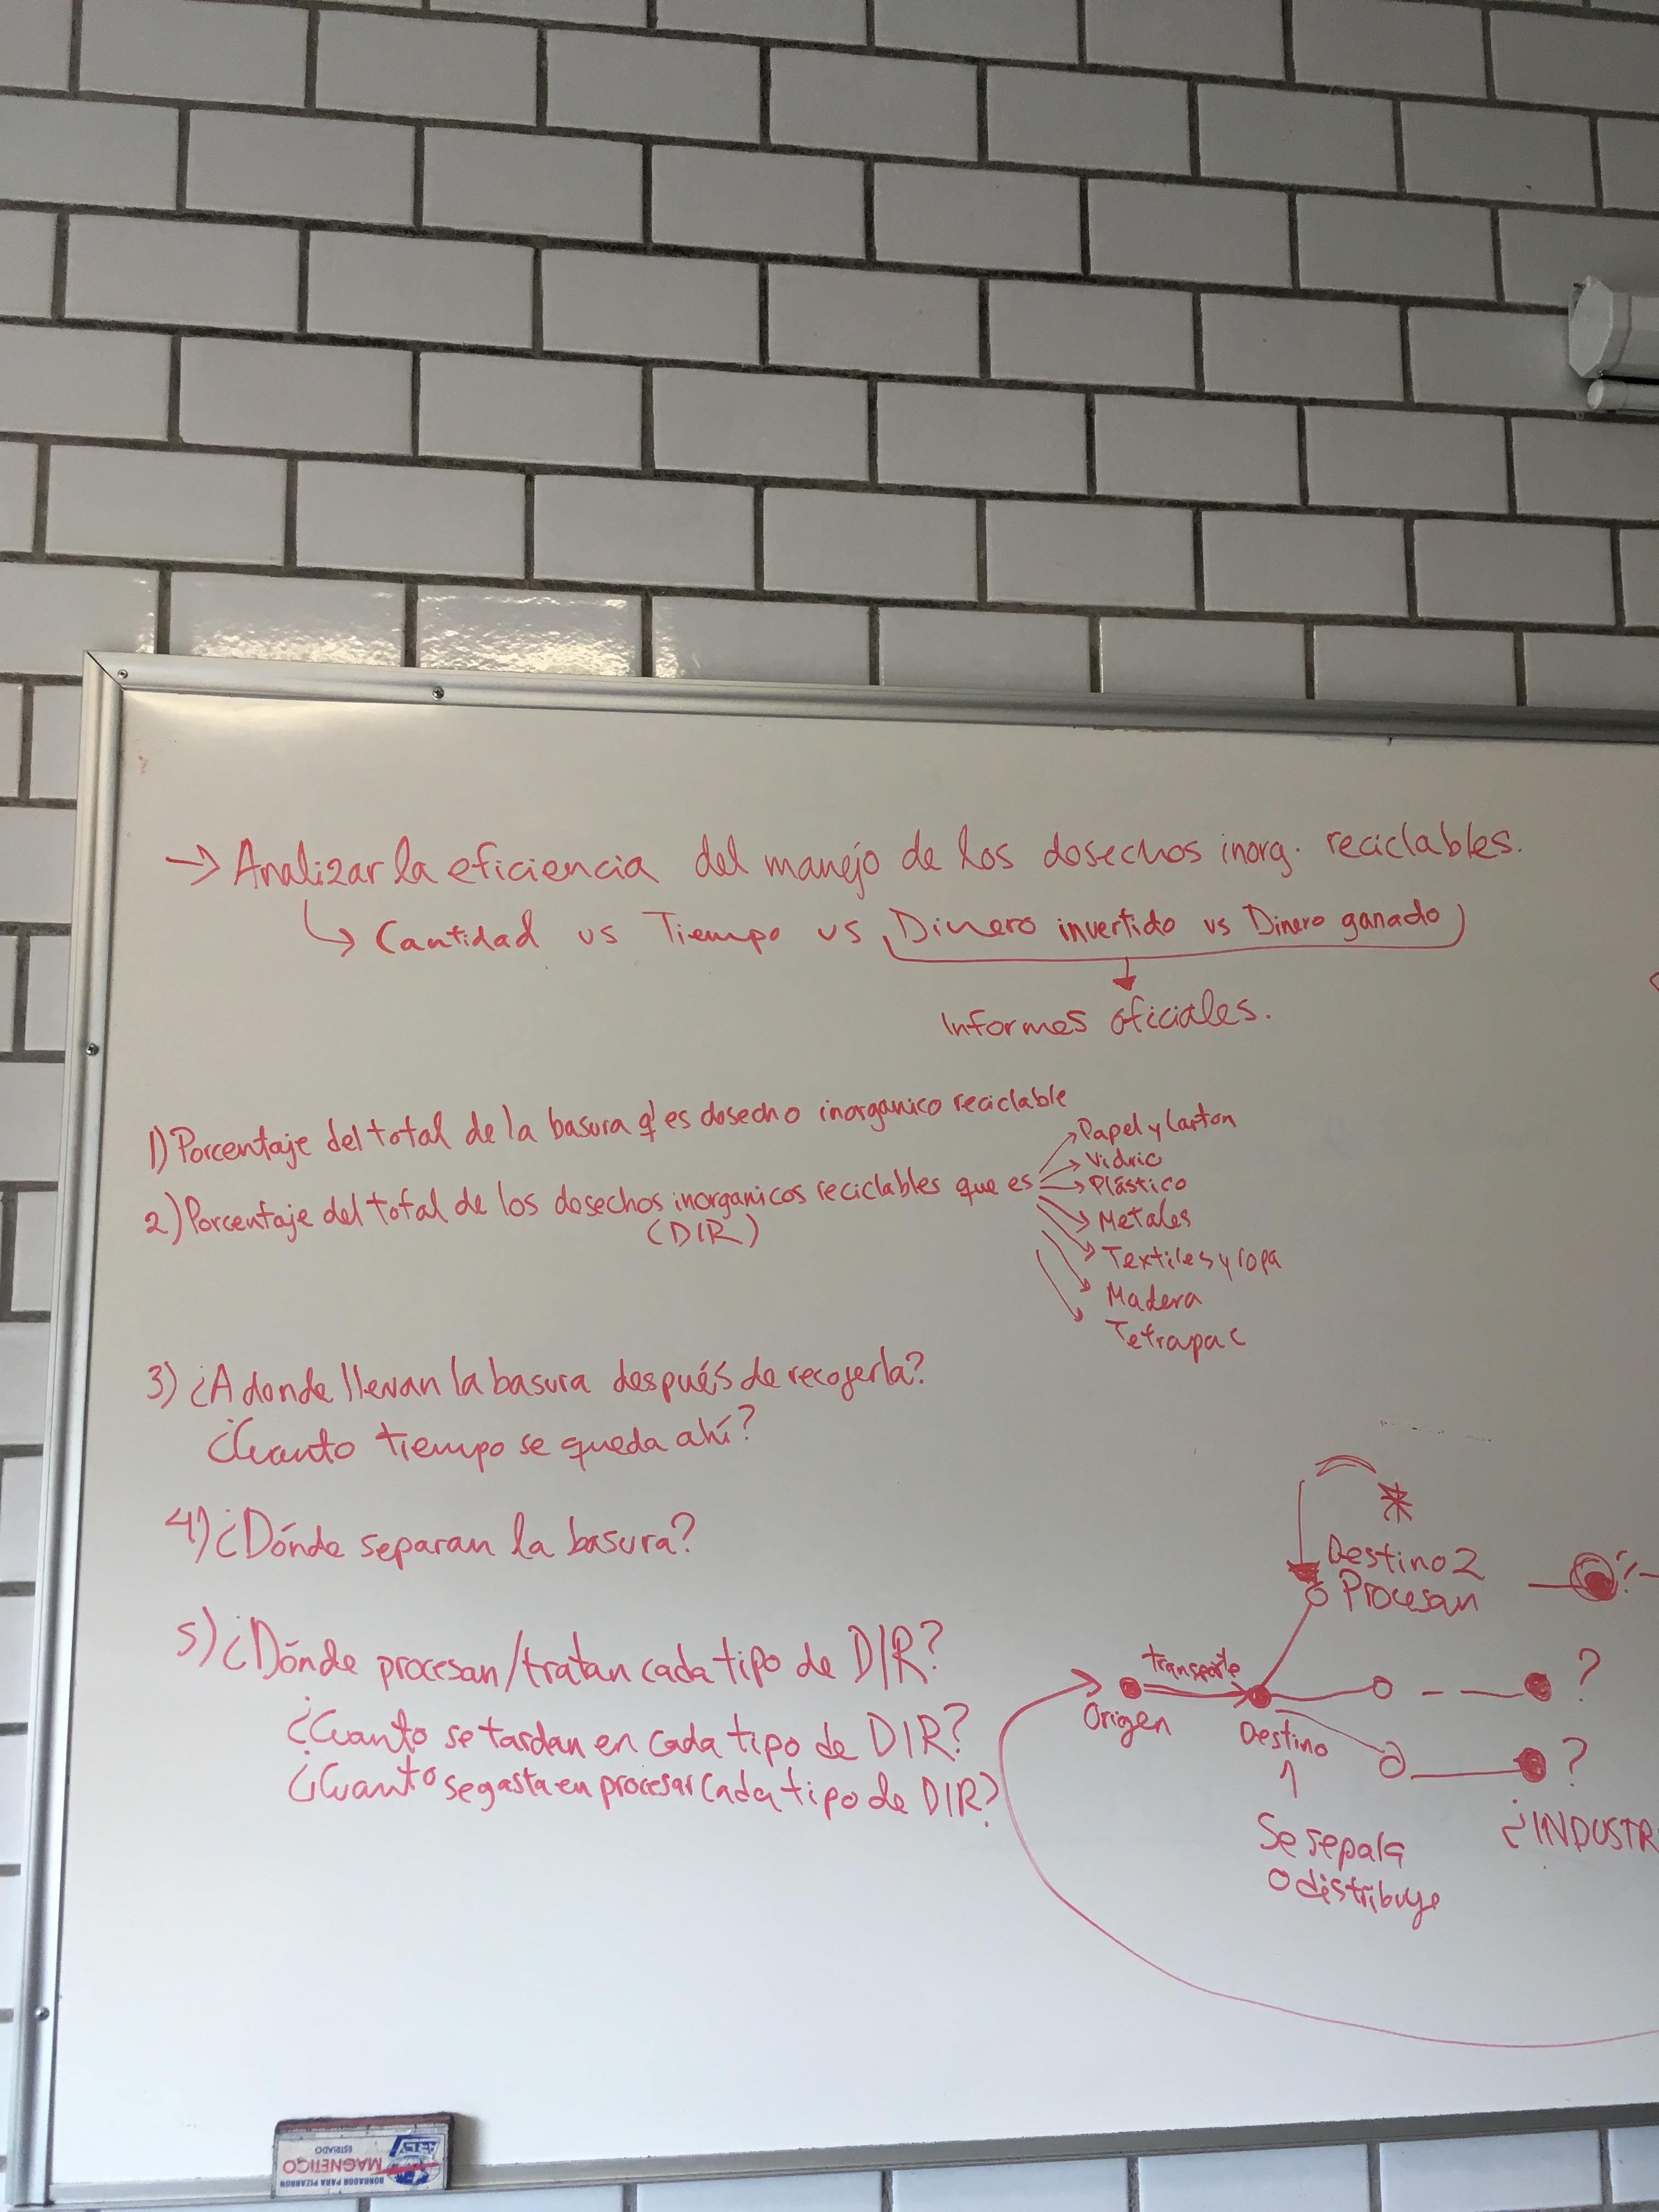 → Analizar la eficiencia del manejo de los dosechos inorg. reciclables.
↳ Cantidad vs Tiempo vs Dinero invertido vs Dinero ganado
Informes oficiales.
1) Porcentaje del total de la basura q' es dosecho inorganico reciclable
2) Porcentaje del total de los dosechos inorganicos reciclables que es
(DIR)
→ Papel y Carton
→ Vidrio
→ Plástico
→ Metales
→ Textiles y ropa
→ Madera
→ Tetrapac
3) ¿A donde llevan la basura después de recogerla?
¿Cuanto tiempo se queda ahí?
4) ¿Dónde separan la basura?
5) ¿Dónde procesan/tratan cada tipo de DIR?
¿Cuanto se tardan en cada tipo de DIR?
¿Cuanto se gasta en procesar cada tipo de DIR?
*
Destino 2
Procesan
?
transporte
Origen
Destino
1
?
?
Se separa
o distribuye
¿INDUSTR
BORRADOR PARA PIZARRON
MAGNETICO
ESTRIADO